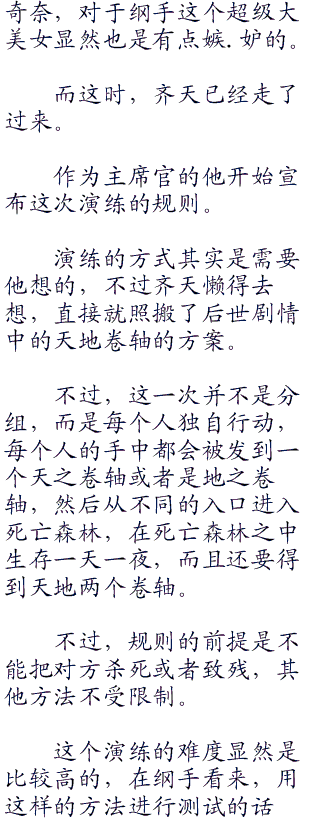 奇奈，对于纲手这个超级大
美女显然也是有点嫉.妒的。
而这时，齐天已经走了
过来。
作为主席官的他开始宣
布这次演练的规则。
演练的方式其实是需要
他想的，不过齐天懒得去
想，直接就照搬了后世剧情
中的天地卷轴的方案。
不过，这一次并不是分
组，而是每个人独自行动，
每个人的手中都会被发到一
个天之卷轴或者是地之卷
轴，然后从不同的入口进入
死亡森林，在死亡森林之中
生存一天一夜，而且还要得
到天地两个卷轴。
不过，规则的前提是不
能把对方杀死或者致残，其
他方法不受限制。
这个演练的难度显然是
比较高的，在纲手看来，用
这样的方法进行测试的话